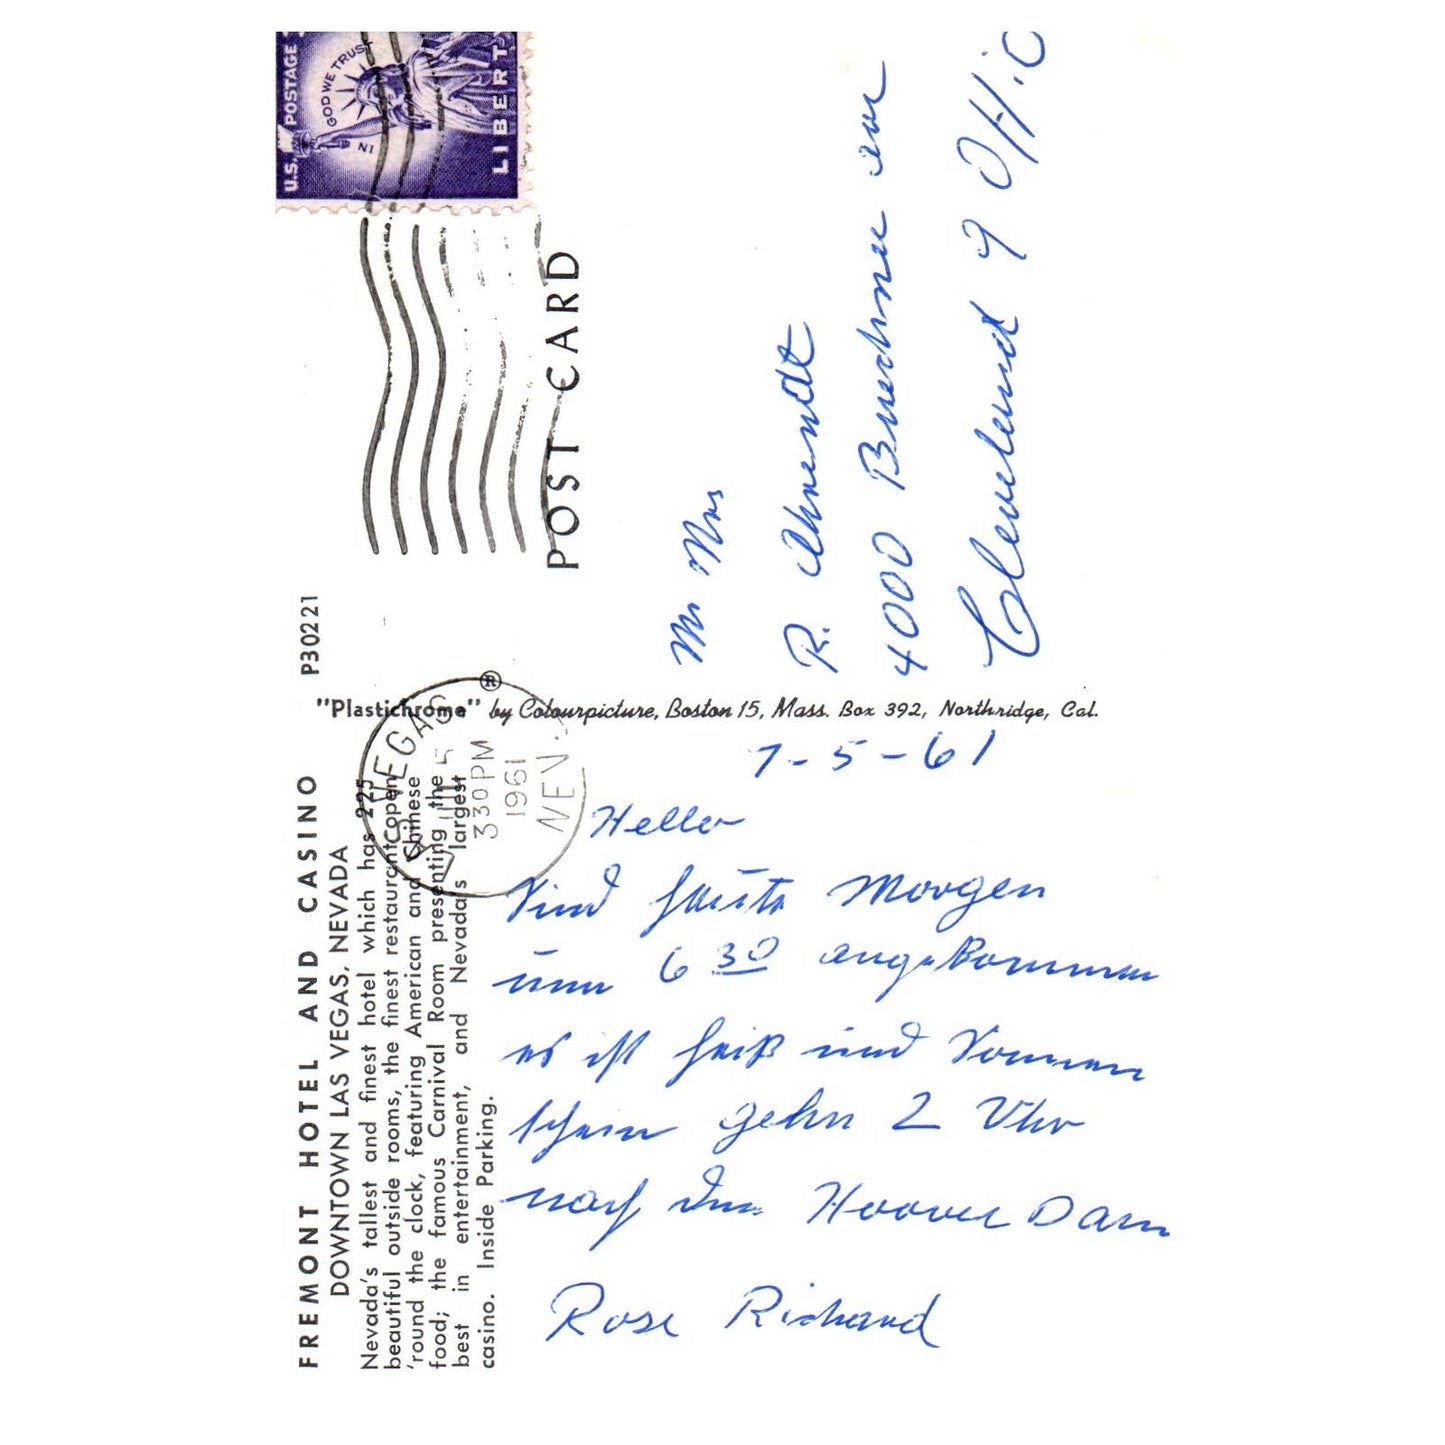 FREMONT HOTEL AND CASINO
DOWNTOWN LAS VEGAS, NEVADA
Nevada's tallest and finest hotel which has 225
beautiful outside rooms, the finest restaurant open
'round the clock, featuring American and Chinese
food; the famous Carnival Room presenting the
best in entertainment, and Nevada's largest
casino. Inside Parking.
P30221
"Plastichrome" ® by Colourpicture, Boston 15, Mass. Box 392, Northridge, Cal.
POST CARD
U.S. POSTAGE
IN GOD WE TRUST
LIBERT
VEGAS
5
330PM
1961
NEV.
7-5-61
Hello
Sind heute Morgen
um 6 30 angekommen
es ist heiß und Sonnen
schein gehn 2 Uhr
nach dem Hoover Dam
Rose Richard
Mr Mrs
R. Ahrendt
4000 Buechner ave
Cleveland 9 Ohio